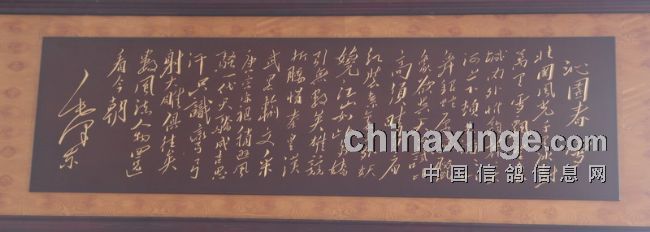 沁园春 雪
北国风光千里冰封
万里雪飘
城内外惟余
河上下顿失
舞银蛇原驰
象欲与天公试比
高须晴日看
红装素裹分外妖
娆江山如此多娇
引无数英雄竞
折腰惜秦皇汉
武略输文采
唐宗宋祖稍逊风
骚一代天骄成吉思
汗只识弯弓
射大雕俱往矣
数风流人物还
看今朝
毛泽东
chinaxinge.com
中国信鸽信息网